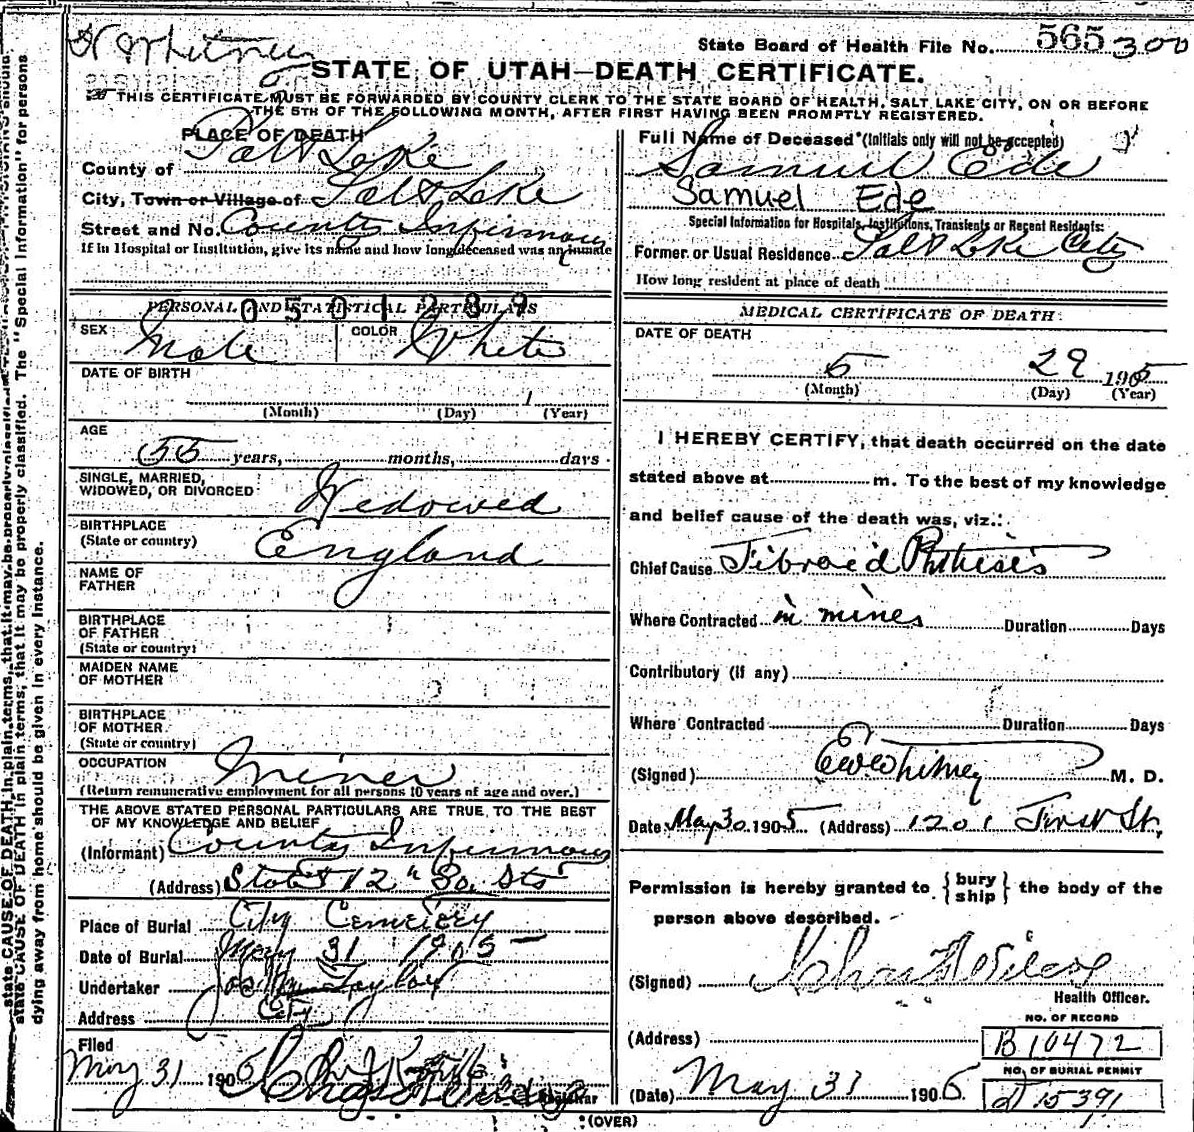 State Board of Health File No. 565 300
STATE OF UTAH—DEATH CERTIFICATE.
THIS CERTIFICATE MUST BE FORWARDED BY COUNTY CLERK TO THE STATE BOARD OF HEALTH, SALT LAKE CITY, ON OR BEFORE
THE 5TH OF THE FOLLOWING MONTH, AFTER FIRST HAVING BEEN PROMPTLY REGISTERED.
PLACE OF DEATH
County of Salt Lake
City, Town or Village of Salt Lake
Street and No. County Infirmary
If in Hospital or Institution, give its name and how long deceased was an inmate
PERSONAL AND STATISTICAL PARTICULARS
0 5 0 1 2 8 9
SEX Male COLOR White
DATE OF BIRTH
1
(Month) (Day) (Year)
AGE
55 years, months, days
SINGLE, MARRIED,
WIDOWED, OR DIVORCED Wedowed
BIRTHPLACE
(State or country) England
NAME OF
FATHER
BIRTHPLACE
OF FATHER
(State or country)
MAIDEN NAME
OF MOTHER
BIRTHPLACE
OF MOTHER
(State or country)
OCCUPATION Miner
(Return remunerative employment for all persons 10 years of age and over.)
THE ABOVE STATED PERSONAL PARTICULARS ARE TRUE TO THE BEST
OF MY KNOWLEDGE AND BELIEF
(Informant) County Infirmary
(Address) State & 12" So. Sts
Place of Burial City Cemetery
Date of Burial May 31 1905
Undertaker Jos. Wm Taylor
Address City
Filed
May 31 1905
Registrar
Full Name of Deceased (Initials only will not be accepted)
Samuel Ede
Samuel Ede
Special Information for Hospitals, Institutions, Transients or Recent Residents:
Former or Usual Residence Salt Lake City
How long resident at place of death
MEDICAL CERTIFICATE OF DEATH
DATE OF DEATH
5 29 1905
(Month) (Day) (Year)
I HEREBY CERTIFY, that death occurred on the date
stated above at m. To the best of my knowledge
and belief cause of the death was, viz.:
Chief Cause Fibroid Phthisis
Where Contracted in mines Duration Days
Contributory (if any)
Where Contracted Duration Days
(Signed) EW Whitney M. D.
Date May 30 1905 (Address) 1201 First St,
Permission is hereby granted to {bury
ship} the body of the
person above described.
(Signed)
Health Officer.
NO. OF RECORD
(Address) B 10472
NO. OF BURIAL PERMIT
(Date) May 31 1905 D 15391
(OVER)
state CAUSE OF DEATH in plain terms, that it may be properly classified. The "Special Information" for persons
dying away from home should be given in every instance.